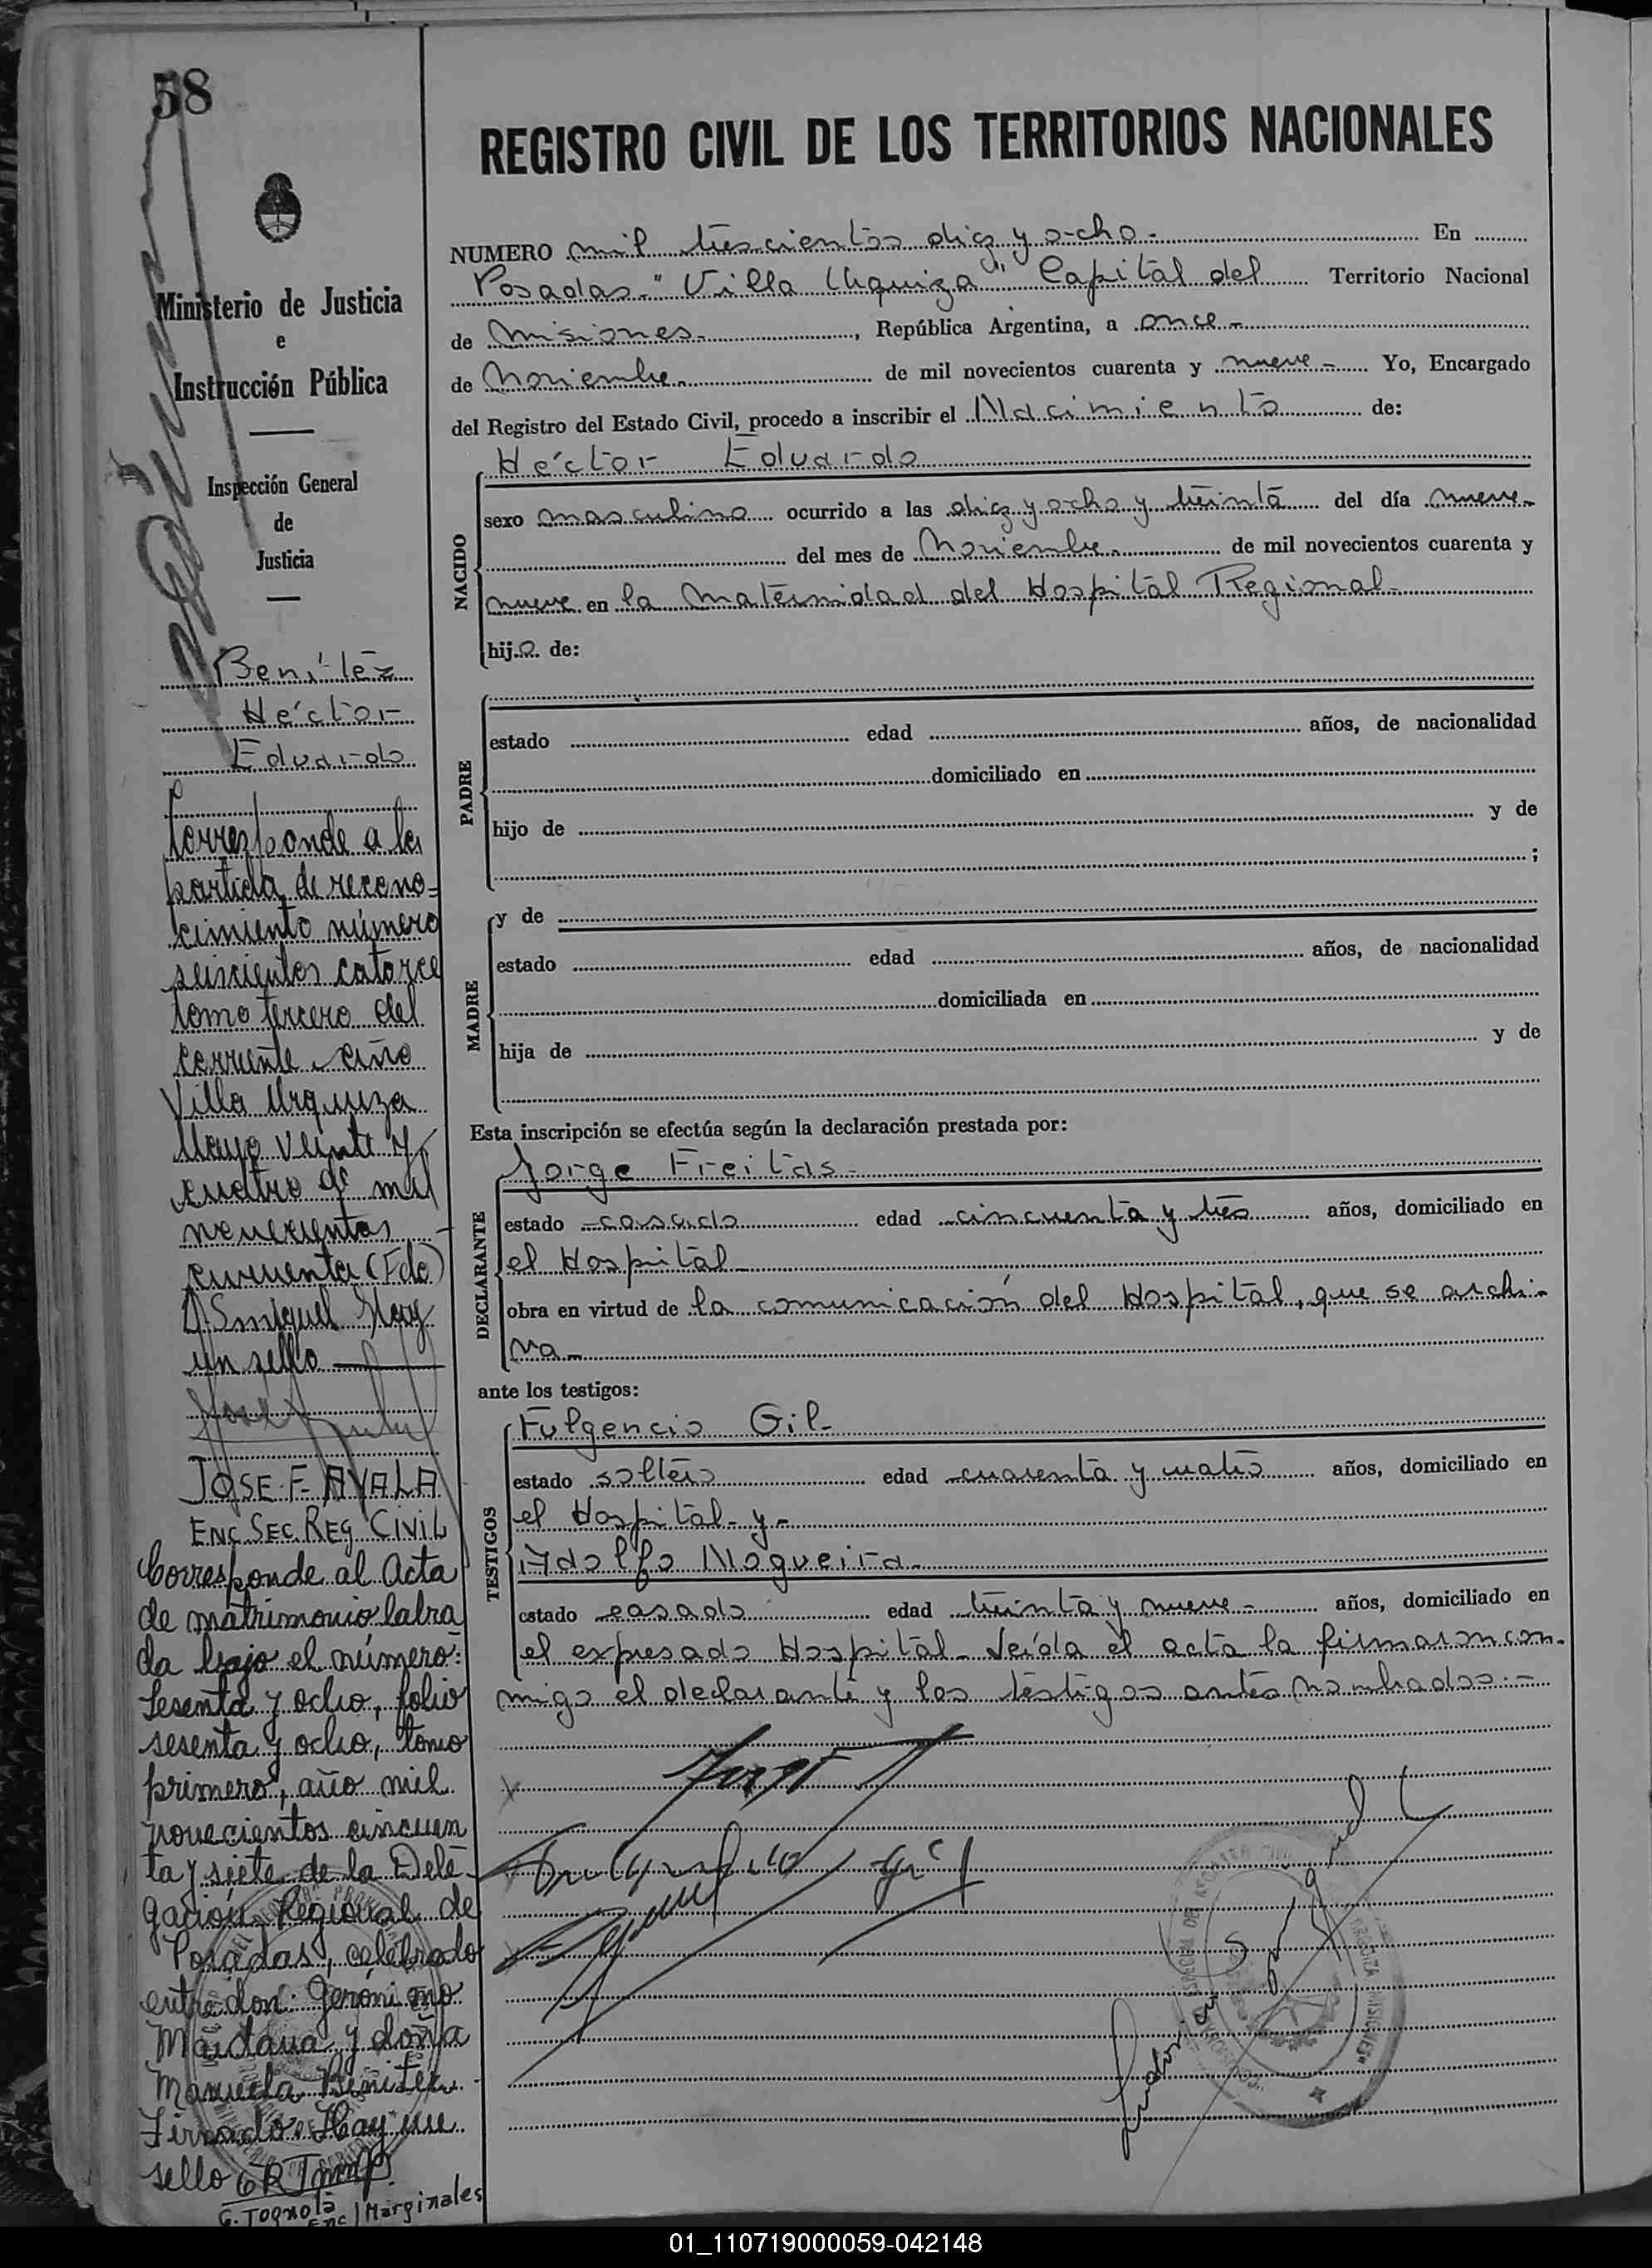 58
REGISTRO CIVIL DE LOS TERRITORIOS NACIONALES
Ministerio de Justicia
e
Instrucción Pública
Inspección General
de
Justicia
Benítez
Héctor
Eduardo
Corresponde a la
partida de recono-
cimiento número
seiscientos catorce
tomo tercero del
corriente año
Villa Urquiza
Mayo veinte y
cuatro de mil
novecientos
cincuenta (Fdo)
D. Smiguel Hay
un sello
JOSE F. AYALA
ENC. SEC. REG. CIVIL
Corresponde al Acta
de matrimonio labra
da bajo el número:
Sesenta y ocho, folio
sesenta y ocho, tomo
primero, año mil
novecientos cincuen
ta y siete de la Dele-
gación Regional de
Posadas, celebrado
entre don: Gerónimo
Maidana y doña
Manuela Benitez.
Firmado. Hay un
sello
G. Tognola
Enc / Marginales
NUMERO mil trescientos diez y ocho.- En
Posadas-"Villa Urquiza" Capital del Territorio Nacional
de Misiones.-, República Argentina, a once.-
de Noviembre.- de mil novecientos cuarenta y nueve.- Yo, Encargado
del Registro del Estado Civil, procedo a inscribir el Nacimiento de:
Héctor Eduardo
NACIDO
sexo masculino ocurrido a las diez y ocho y treinta del día nueve-
del mes de Noviembre.- de mil novecientos cuarenta y
nueve en la Maternidad del Hospital Regional-
hijo de:
PADRE
estado edad años, de nacionalidad
domiciliado en
hijo de y de
;
MADRE
y de
estado edad años, de nacionalidad
domiciliada en
hija de y de
Esta inscripción se efectúa según la declaración prestada por:
DECLARANTE
Jorge Freitas-
estado casado edad cincuenta y tres años, domiciliado en
el Hospital-
obra en virtud de la comunicación del Hospital, que se archi-
va-
ante los testigos:
TESTIGOS
Fulgencio Gil-
estado soltero edad cuarenta y cuatro años, domiciliado en
el Hospital- y-
Adolfo Nogueira-
estado casado edad treinta y nueve- años, domiciliado en
el expresado Hospital- Leída el acta la firmaron con-
migo el declarante y los testigos antes nombrados.-
01_110719000059-042148